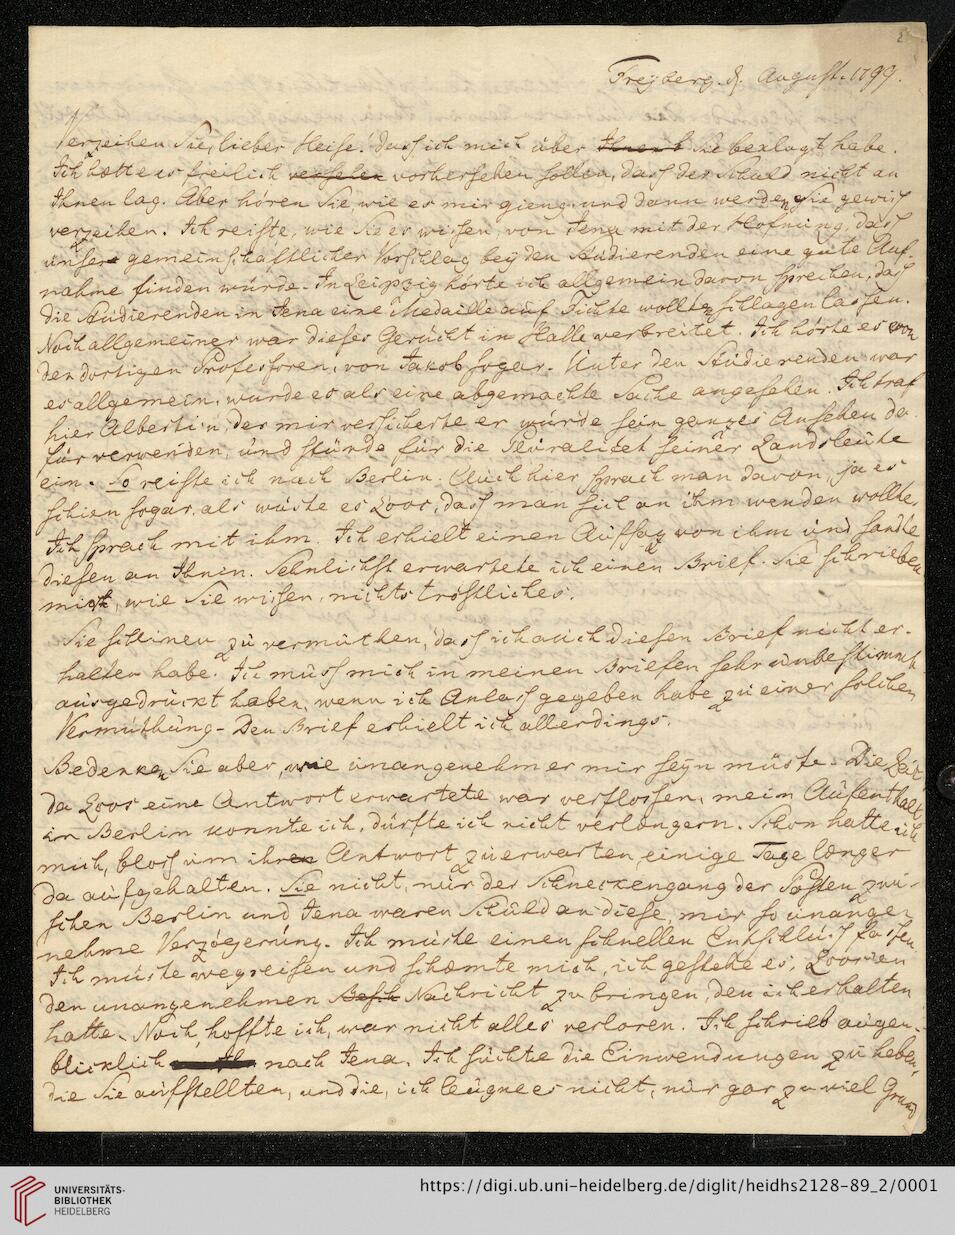 2
Freyberg. d. August. 1799.
Verzeihen Sie, lieber Heise! dass ich mich über Sie beklagt habe.
Ich hatte es freilich versehen vorhersehen sollen, dass der Schuld nicht an
Ihnen lag. Aber hören Sie wie es mir gieng und dann werden Sie gewis
verzeihen. Ich reiste, wie Sie es wissen, von Jena mit der Hofnung, dass
unser gemeinschäftlicher Vorschlag bey den Studierenden eine gute Auf-
nahme finden würde. In Leipzig hörte ich allgemein davon sprechen, dass
die Studierenden in Jena eine Medaille auf Fichte wollten schlagen lassen.
Noch allgemeiner war dieses Gerücht in Halle verbreitet. Ich hörte es von
den dortigen Professoren, von Jakob sogar. Unter den Studierenden war
es allgemein, wurde es als eine abgemachte Sache angesehen. Ich traf
hier Alberti'n, der mir versicherte er würde sein ganzes Ansehen da-
für verwenden, und stünde für die Pluralitet seiner Landsleute
ein. So reiste ich nach Berlin. Auch hier sprach man davon, ja es
schien sogar, als wüste es Loos, dass man sich an ihm wenden wollte.
Ich sprach mit ihm. Ich erhielt einen Aufsaz von ihm und sandte
diesen an Ihnen. Sehnlichst erwartete ich einen Brief. Sie schrieben
mich, wie Sie wissen, nichts tröstliches.
Sie schienen zu vermuthen, dass ich auch diesen Brief nicht er-
halten habe. Ich muss mich in meinen Briefen sehr unbestimmt
ausgedrückt haben, wenn ich Anlass gegeben habe zu einer solchen
Vermuthung - Den Brief erhielt ich allerdings.
Bedenken Sie aber, wie unangenehm er mir seyn müste. Die Zeit
da Loos eine Antwort erwartete war verflossen, mein Aufenthalt
in Berlin konnte ich, dürfte ich nicht verlängern. Schon hatte ich
mich, bloss um ihren Antwort zu erwarten, einige Tage længer
da aufgehalten. Sie nicht, nur der Schneckengang der Posten zwi-
schen Berlin und Jena waren Schuld an diese, mir so unange-
nehme Verzögerung. Ich muste einen schnellen Entschluss fassen
Ich muste wegreisen und schæmte mich, ich gestehe es, Loosen
den unangenehmen Besch Nachricht zu bringen, den ich erhalten
hatte. Noch, hoffte ich, war nicht alles verloren. Ich schrieb augen-
blicklich nach Jena. Ich suchte die Einwendungen zu heben,
die Sie aufstellten, und die, ich leugne es nicht, nur gar zu viel Grund
UNIVERSITÄTS-
BIBLIOTHEK
HEIDELBERG
https://digi.ub.uni-heidelberg.de/diglit/heidhs2128-89_2/0001